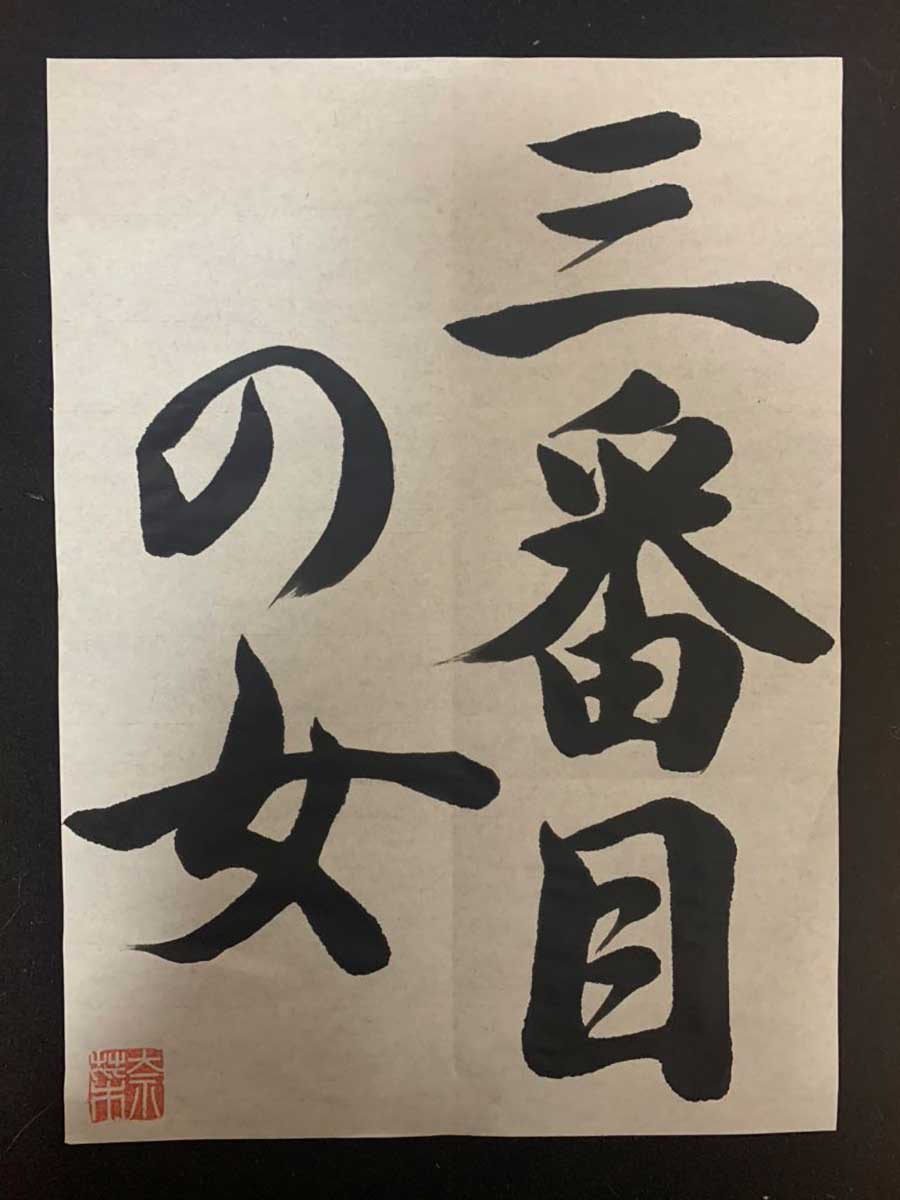 三番目
の女
奈葉